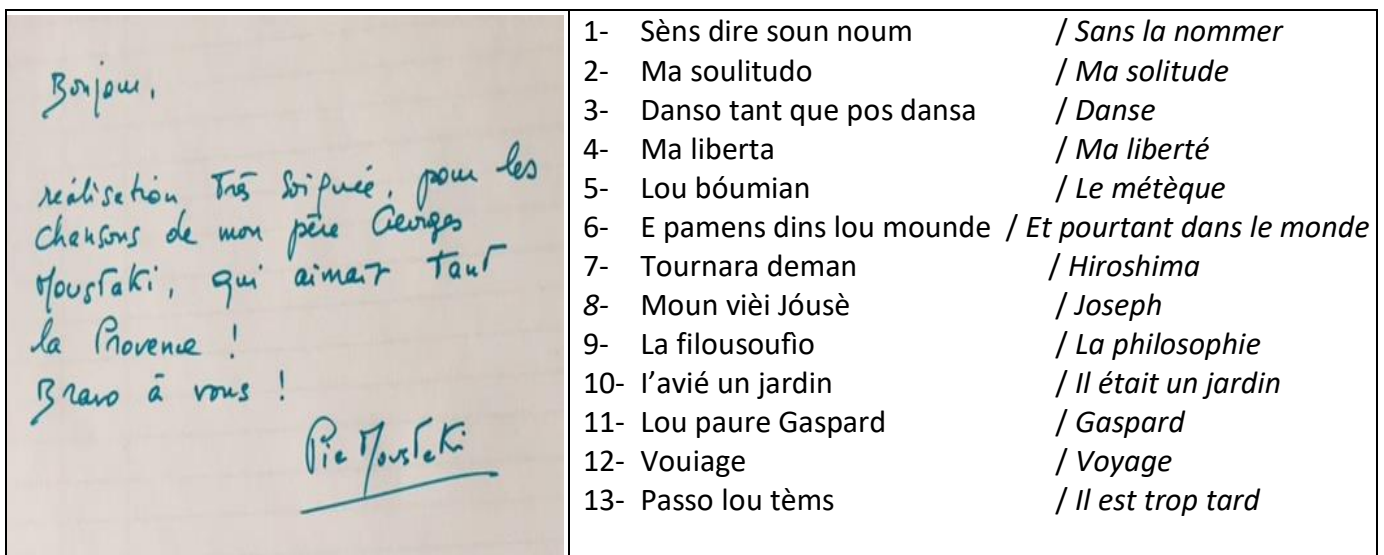 Bonjour,
réalisation très soignée, pour les
chansons de mon père Georges
Moustaki, qui aimait tant
la Provence !
Bravo à vous !
Pia Moustaki
1- Sèns dire soun noum / Sans la nommer
2- Ma soulitudo / Ma solitude
3- Danso tant que pos dansa / Danse
4- Ma liberta / Ma liberté
5- Lou bóumian / Le métèque
6- E pamens dins lou mounde / Et pourtant dans le monde
7- Tournara deman / Hiroshima
8- Moun vièi Jóusè / Joseph
9- La filousoufìo / La philosophie
10- I’avié un jardin / Il était un jardin
11- Lou paure Gaspard / Gaspard
12- Vouiage / Voyage
13- Passo lou tèms / Il est trop tard